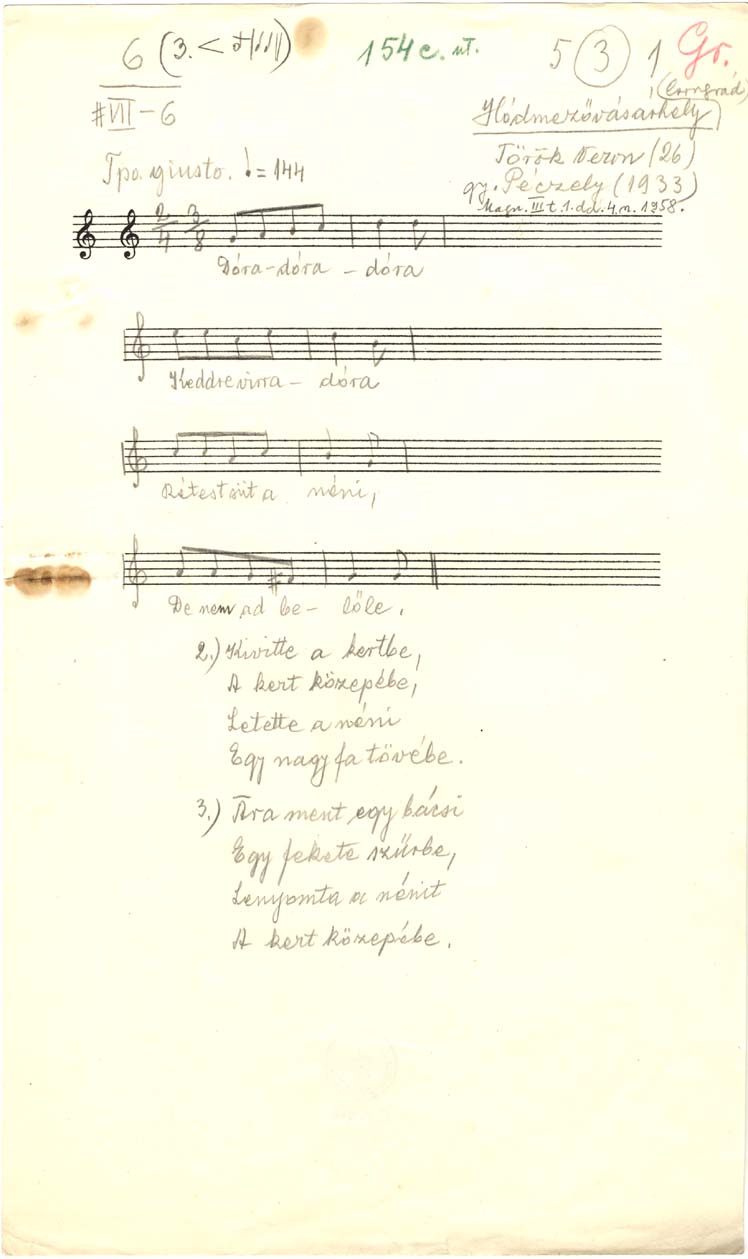 6 (3. <
154 c. ut.
5 (3) 1 Gr.
#VII - 6
Hódmezővásárhely, (Csongrád)
Tpo. giusto. ♩ = 144
Török Veron (26)
gy. Péczely (1933)
Magn. III t. 1. d.d. 4. m. 1958.
2/4 3/8
Dóra-dóra - dóra
Keddre virra - dóra
Rétest süt a néni,
De nem ad be - lőle.
2.) Kivitte a kertbe,
A kert közepébe,
Letette a néni
Egy nagy fa tövébe.
3.) Arra ment egy bácsi
Egy fekete szűrbe,
Lenyomta a nénit
A kert közepébe.